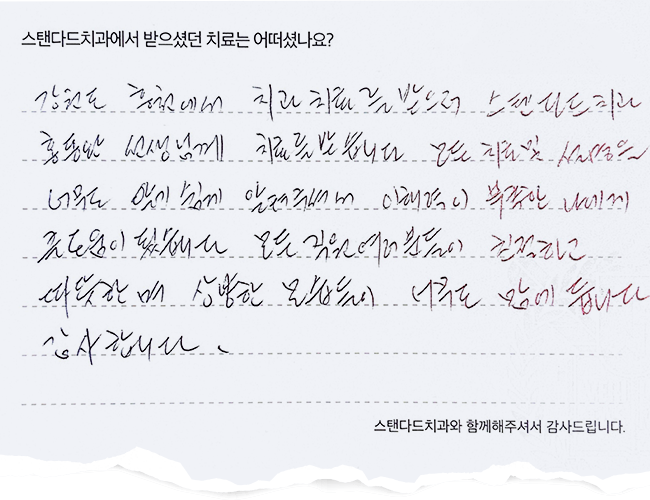 스탠다드치과에서 받으셨던 치료는 어떠셨나요?
강원도 홍천에서 치과 치료를 받으러 스텐다드치과
홍동한 선생님께 치료를 받습니다 모든 치료및 설명을
너무도 알기 쉽게 알려주셔서 이해력이 부족한 나에게
큰도움이 됬습니다 모든 직원여러분들이 친절하고
따뜻한며 상냥한 모습들이 너무도 맘에 듭니다
감사합니다.
스탠다드치과와 함께해주셔서 감사드립니다.